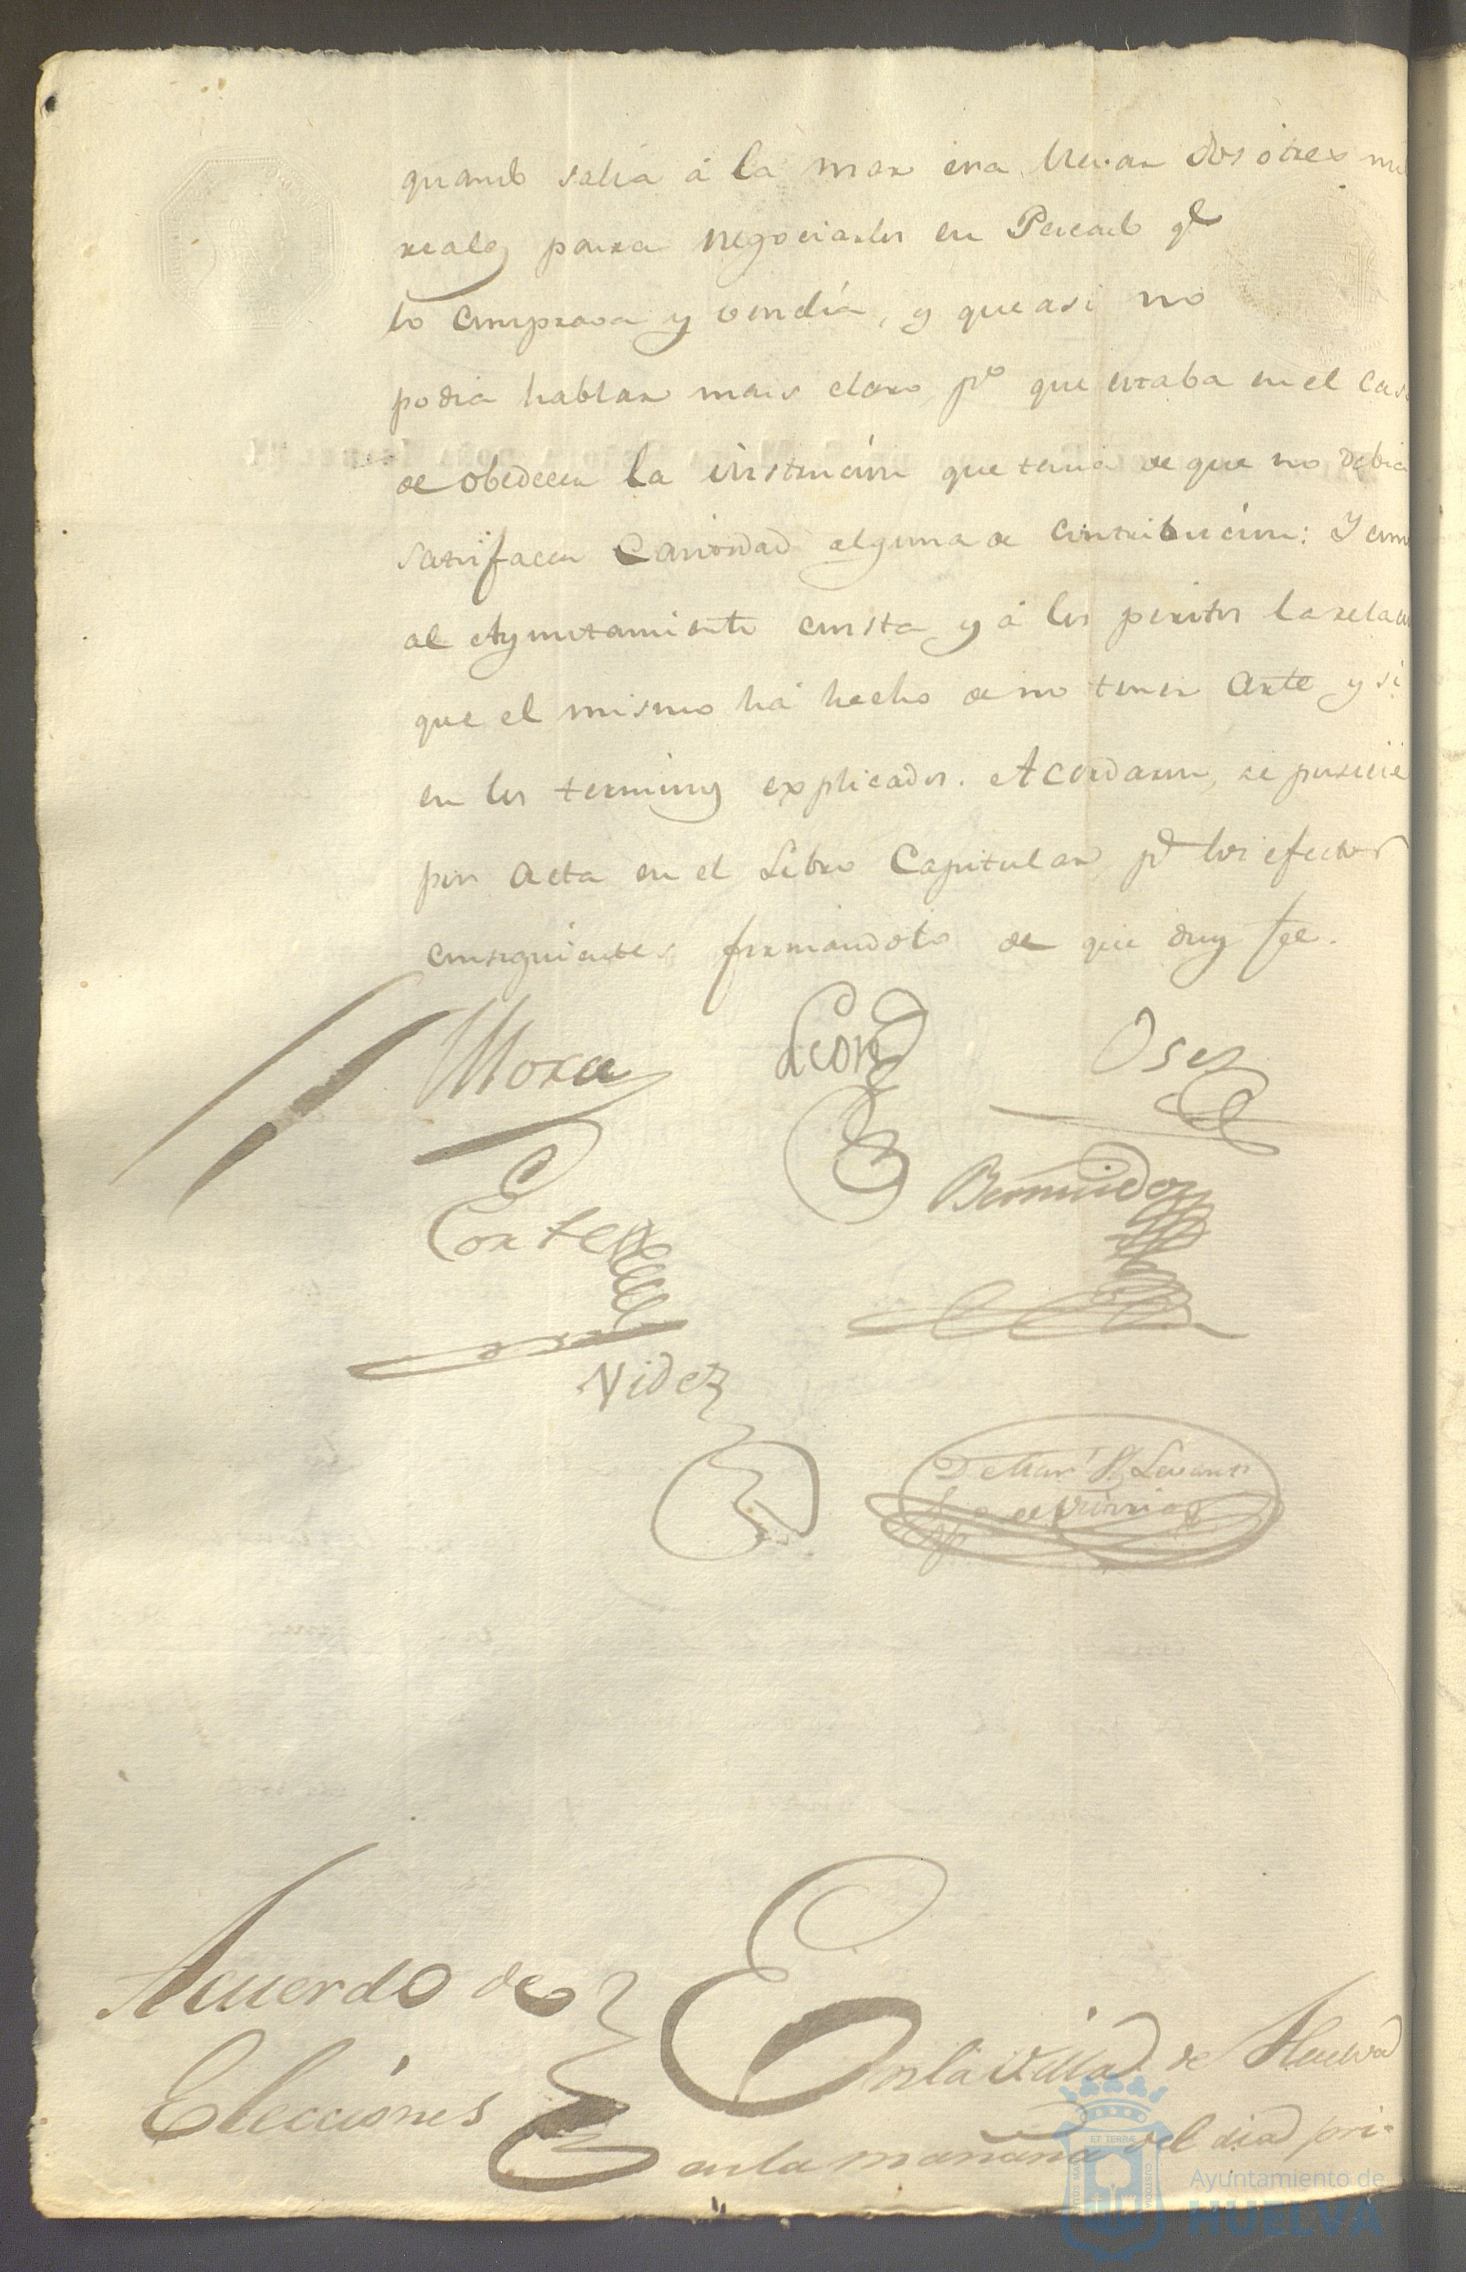 quando salia á la mar era llevar dos ó tres mil
reales para negociarlos en Pescado qe
lo comprava y vendía, y que asi no
podia hablar mais claro, po que estaba en el caso
de obedecer la instrucion que tenia de que no debia
satisfacer cantidad alguna de contribucion: Y como
al Ayuntamiento consta y á los peritos la relacion
que el mismo há hecho de no tener Arte y si
en los terminos explicados. Acordaron, se pusiese
por acta en el Libro Capitular pa los efectos
consiguientes firmandolo de que doy fee.
Mora Leon Osez
Cortes Bermudez
Videz
Acuerdo de
Elecciones
En la Villa de Huelva
en la mañana del dia pri-
ET TERRÆ
CUSTODIA
Ayuntamiento de
HUELVA